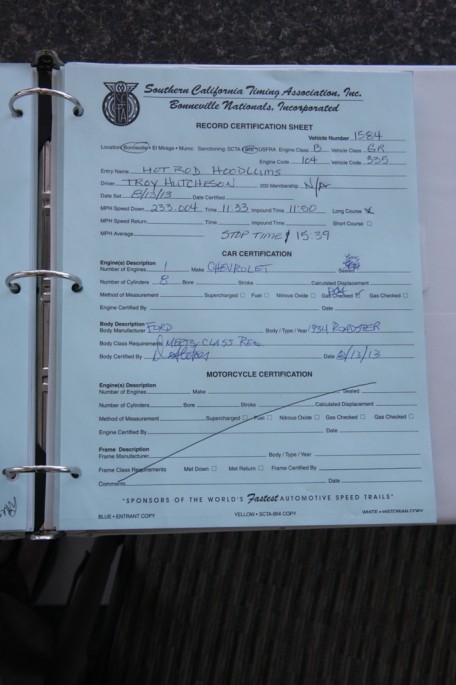 Southern California Timing Association, Inc.
Bonneville Nationals, Incorporated
RECORD CERTIFICATION SHEET
Vehicle Number 1584
Location Bonneville • El Mirage • Muroc Sanctioning SCTA BNI USFRA Engine Class B Vehicle Class GR
Engine Code 104 Vehicle Code 335
Entry Name HOT ROD HOODLUMS
Driver TROY HUTCHESON 200 Membership N/A
Date Set 8/13/13 Date Certified
MPH Speed Down 233.004 Time 11:33 Impound Time 11:50 Long Course
MPH Speed Return Time Impound Time Short Course
MPH Average STOP TIME 15:39
CAR CERTIFICATION
Engine(s) Description
Number of Engines 1 Make CHEVROLET Sealed
Number of Cylinders 8 Bore Stroke Calculated Displacement
Method of Measurement Supercharged Fuel Nitrous Oxide Gas Checked Gas Checked
Engine Certified By Date
Body Description
Body Manufacturer FORD Body / Type / Year 1934 ROADSTER
Body Class Requirements MEETS CLASS REQ.
Body Certified By Date 8/13/13
MOTORCYCLE CERTIFICATION
Engine(s) Description
Number of Engines Make Sealed
Number of Cylinders Bore Stroke Calculated Displacement
Method of Measurement Supercharged Fuel Nitrous Oxide Gas Checked Gas Checked
Engine Certified By Date
Frame Description
Frame Manufacturer Body / Type / Year
Frame Class Requirements Met Down Met Return Frame Certified By
Comments Date
"SPONSORS OF THE WORLD'S Fastest AUTOMOTIVE SPEED TRAILS"
BLUE • ENTRANT COPY YELLOW • SCTA-BNI COPY WHITE • HISTORIAN COPY